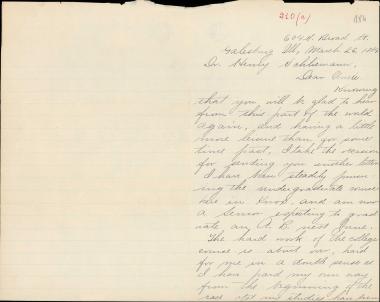 210(a)
604 N. Broad St.
Galesburg Ill, March 26, 18
Dr. Henry Schliemann,
Dear Uncle
Knowing
that you will be glad to hear
from this part of the world
again, and having a little
more leisure than for some
time past, I take the occasion
for sending you another letter
I have been steadily pursu-
ing the undergraduate course
here in Knox and am now
a Senior expecting to grad
uate an A. B. next June.
The hard work of the college
course is about over, hard
for me in a double sense as
I have paid my own way
from the beginning of the
my studies have been